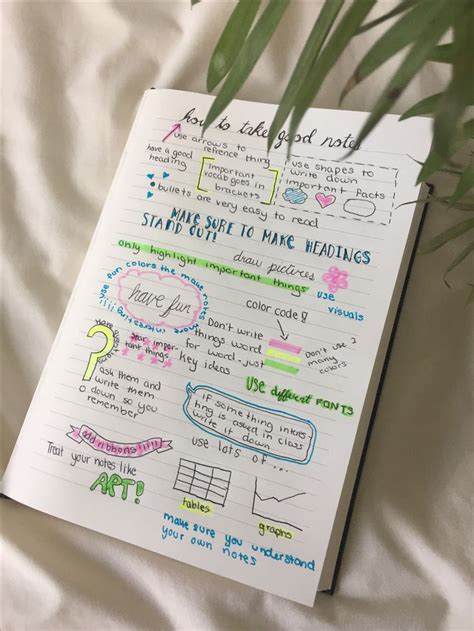 how to take good notes
use arrows to
refrence thing
have a good
heading
important
vocab goes in
brackets
use shapes to
write down
important facts
bullets are very easy to read
MAKE SURE TO MAKE HEADINGS
STAND OUT!
draw pictures
only highlight important things
use
visuals
use fun colors the make notes
more
have fun
color code!
Don't write
things word
for word-just
key ideas
Don't use 2
many
colors
Star impor-
tant things
Have
USE different FONTS
ask them and
write them
down so you
remember
if something interes-
ting is asked in class
write it down
add ribbons!!!!!
use lots of ...
Treat your notes like
ART!
tables
graphs
make sure you understand
your own notes